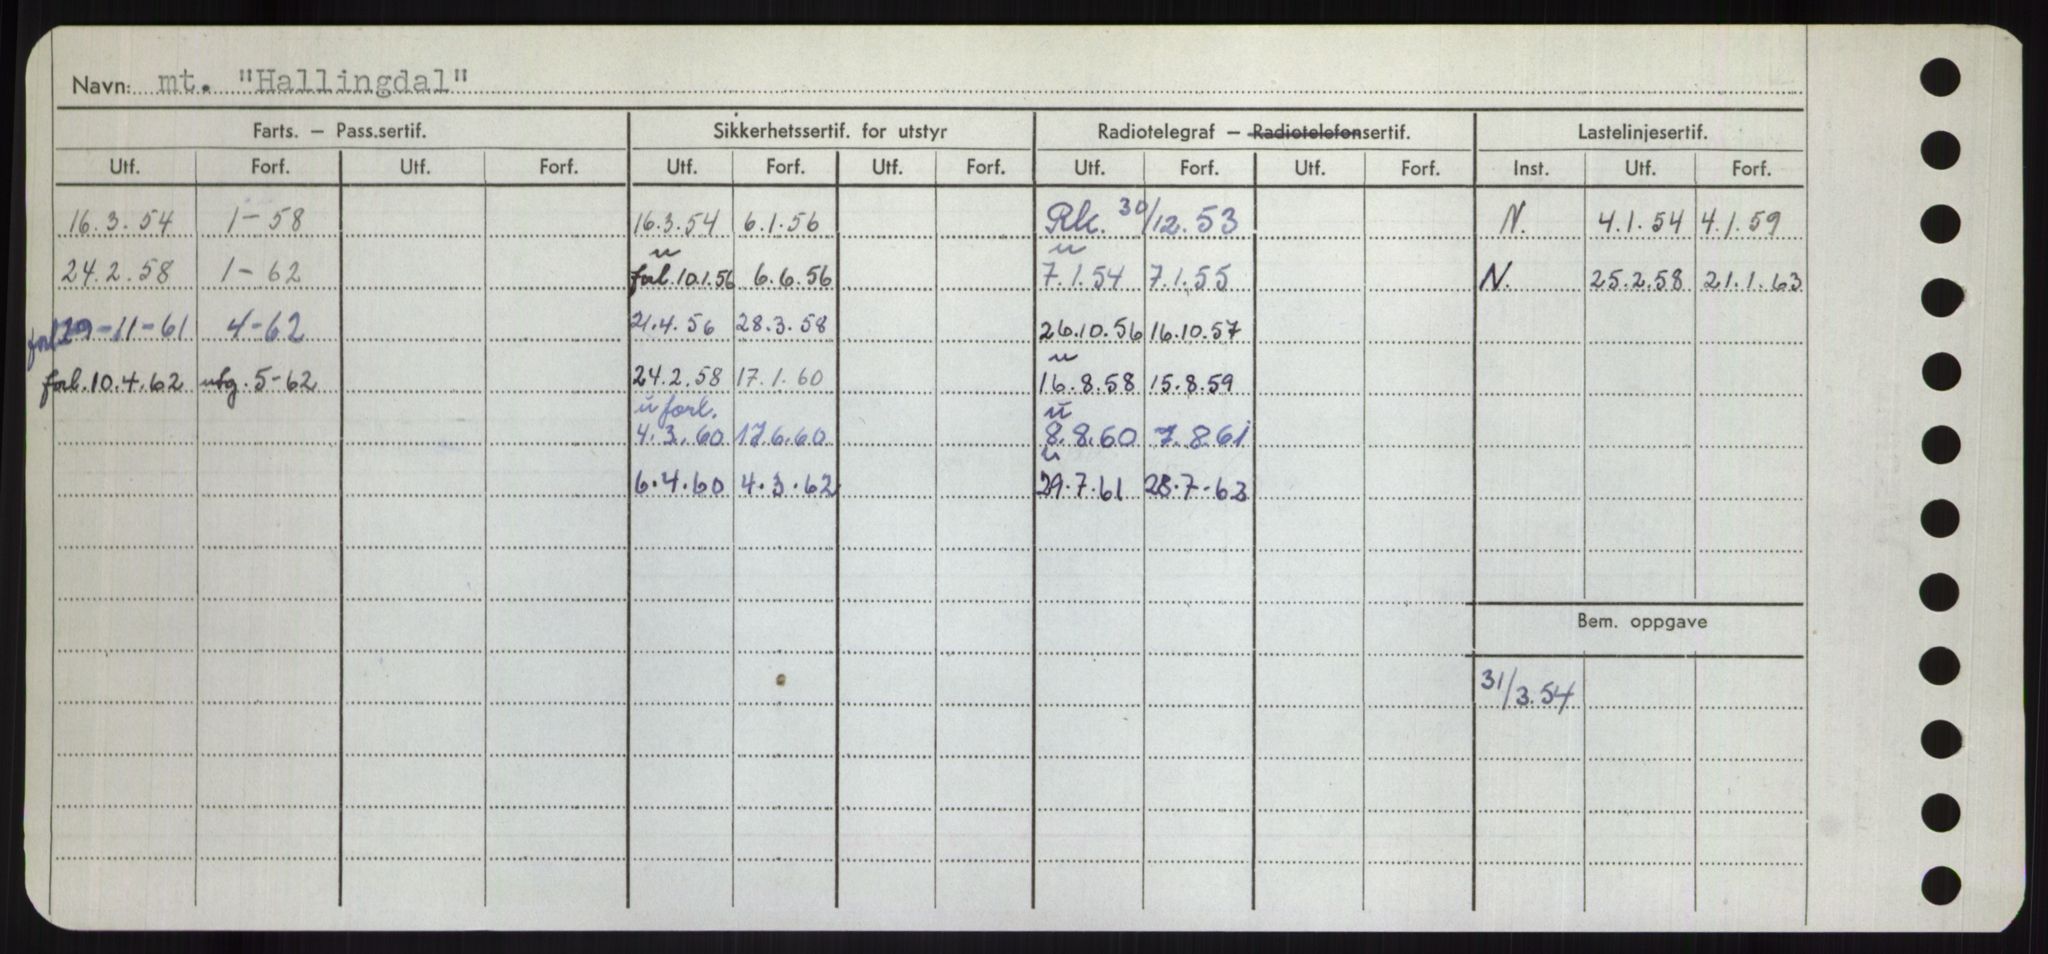 Navn: mt. "Hallingdal"
Farts. – Pass.sertif. Sikkerhetssertif. for utstyr Radiotelegraf – Radiotelefonsertif. Lastelinjesertif.
Utf. Forf. Utf. Forf. Utf. Forf. Utf. Forf. Utf. Forf. Utf. Forf. Inst. Utf. Forf.
16.3.54 1-58 16.3.54 6.1.56 Rk. 30/12.53 N. 4.1.54 4.1.59
u u
24.2.58 1-62 forl.10.1.56 6.6.56 7.1.54 7.1.55 N. 25.2.58 21.1.63
forl 29-11-61 4-62 21.4.56 28.3.58 26.10.56 16.10.57
u
forl.10.4.62 utg.5-62 24.2.58 17.1.60 16.8.58 15.8.59
u forl. u
4.3.60 17.6.60 8.8.60 7.8.61
u
6.4.60 4.3.62 29.7.61 28.7-62
Bem. oppgave
31/3.54